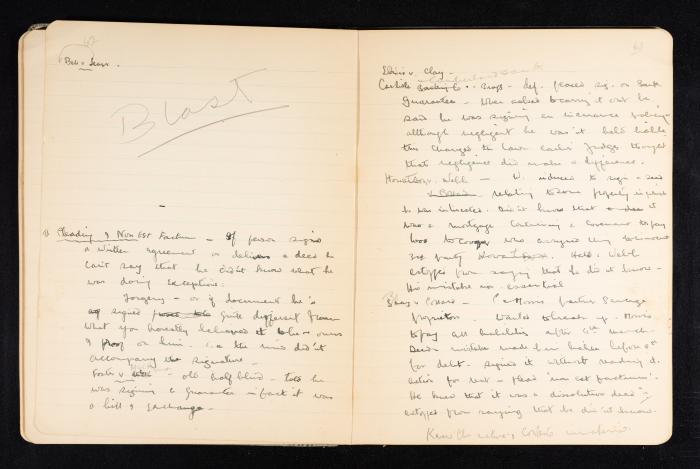 42
Bell v Lever.
Blast
1) Pleading of Non Est Factum - If person signs
a written agreement or delivers a deed he
can't say that he didn't know what he
was doing exceptions.
Forgery - or if document he's
signed quite different from
what you honestly believed it to be &
proof on him. i.e. the mind didn't
accompany the signature -
Foster v - old half blind - told he
was signing a guarantee in fact it was
a bill of exchange.
v. Clay -
Cumberland Bank
Carlisle Banking Co v. Bragg - def. placed sig. on Bank
Guarantee - When asked to carry it out he
said he was signing an insurance policy
although negligent he was n't held liable,
this changed the law earlier judges thought
that negligence did make a difference.
Howatson v. Webb - W. induced to sign a deed
relating to some property in which
he was interested. Didn't know that it
was a mortgage containing a covenant to pay
who assigned they to
3rd party Howatson. Held: Webb
estopped from saying that he did n't know -
His mistake not essential
- Morris partner
- wanted to break up. Morris
to pay all liabilities after 4th March -
mistake made
for debt. signed it without reading it.
action for - plead 'non est factum'.
He knew that it was a dissolution deed
estopped from saying that he did n't know.